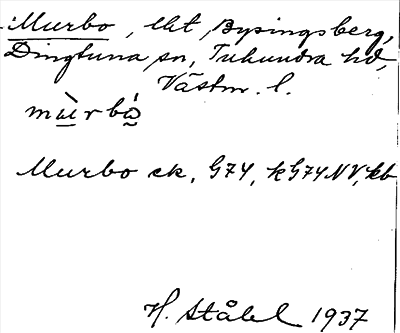 Murbo, lht Bysingsberg,
Dingtuna sn, Tuhundra hd,
Västm. l.
mùrbó
Murbo ek, G74, kG74NV, kb
H. Ståhl 1937